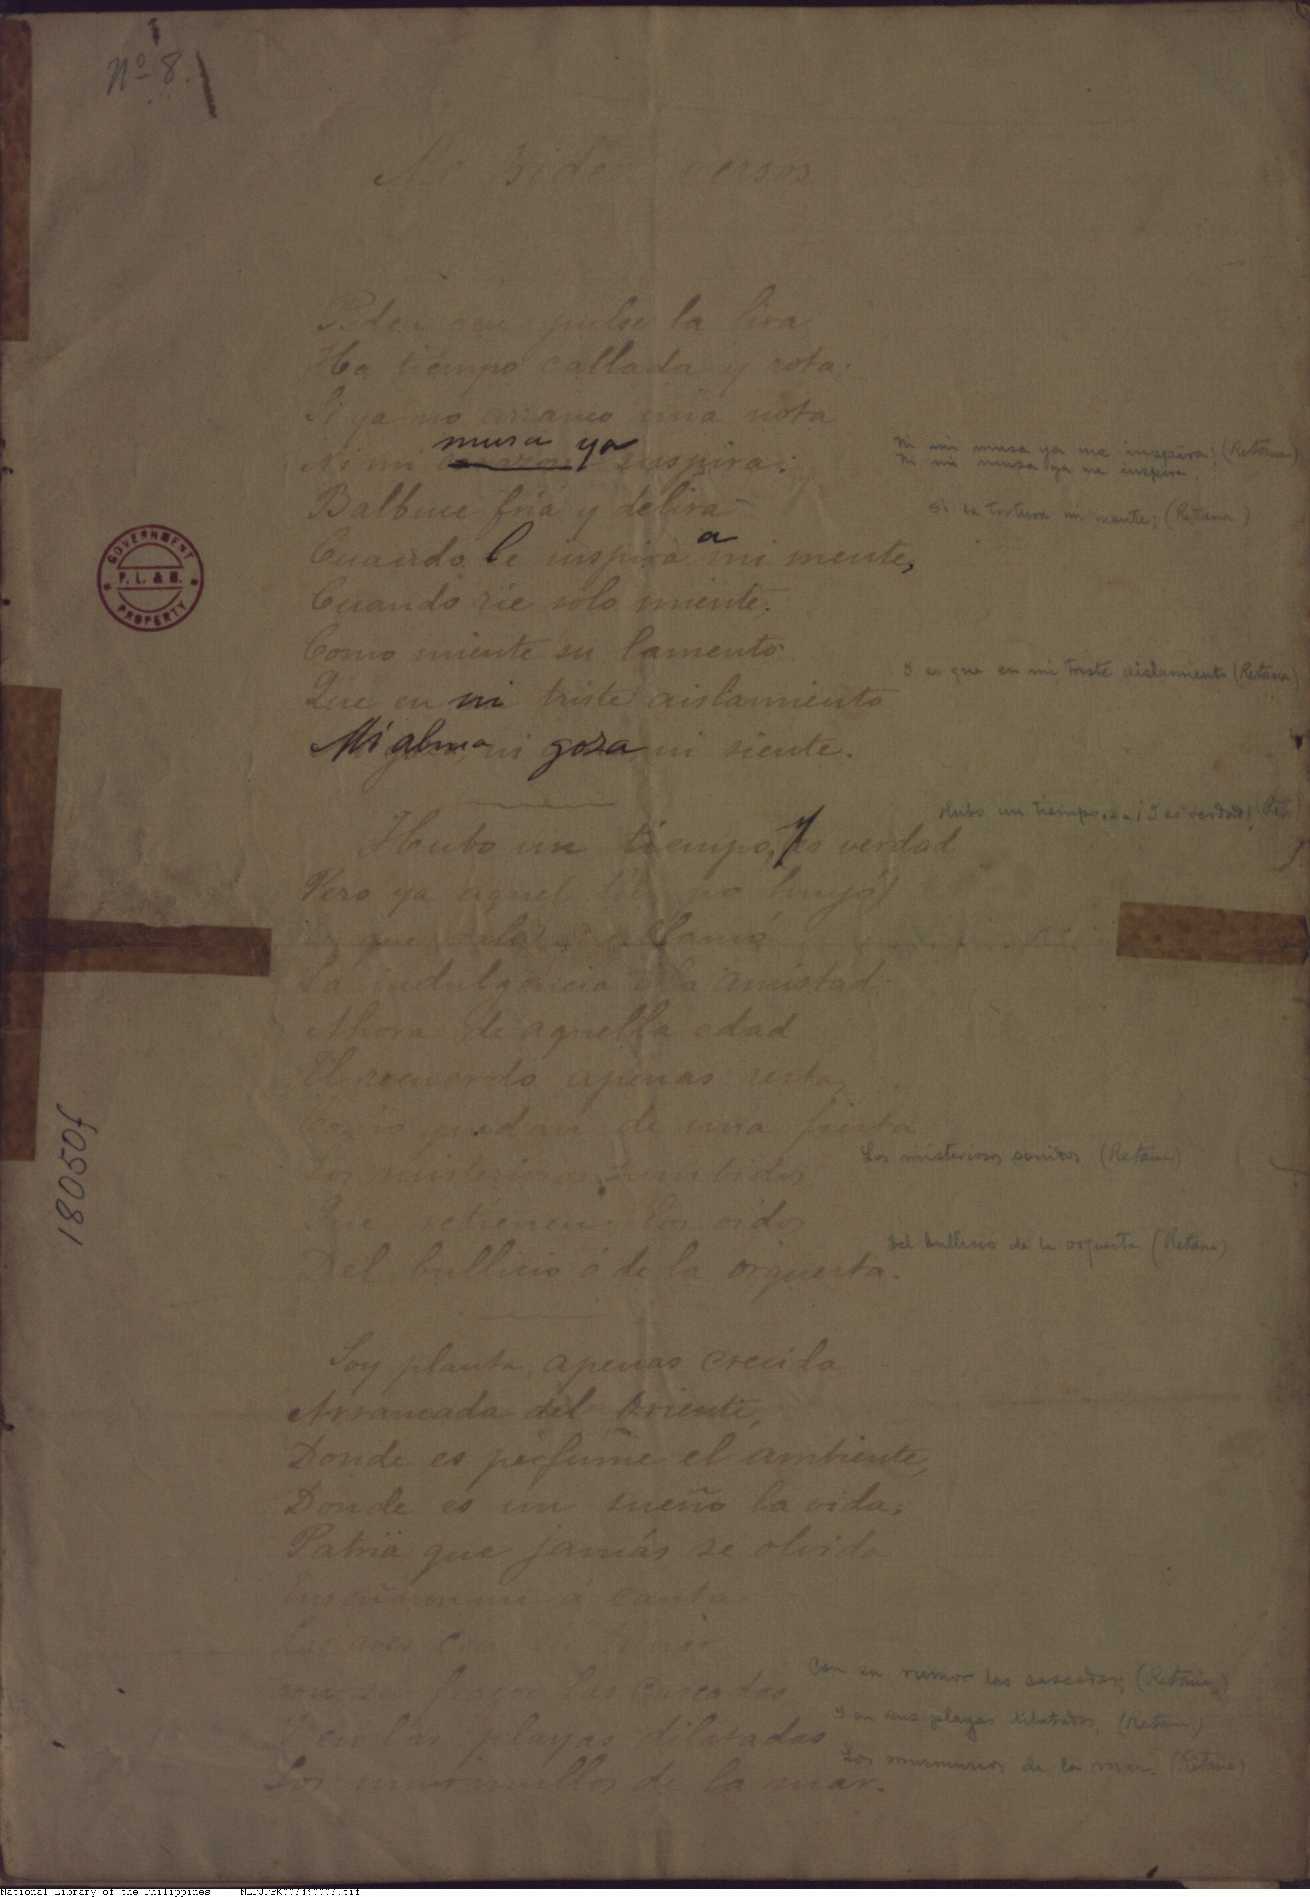 Nº 8.
Mi Piden versos
Piden que pulse la lira
Ha tiempo callada y rota:
Si ya no arranco una nota
musa ya
Ni mi inspira:
Ni mi musa ya me inspira! (Retana)
Ni mi musa ya me inspira.
Balbuce fria y delira
Si la tortura mi mente; (Retana)
a
Cuando le inspira mi mente,
GOVERNMENT
P. L. & M.
PROPERTY
Cuando rie solo miente,
Como miente su lamento:
Y es que en mi triste aislamiento (Retana)
Que en mi triste aislamiento
Mi alma ni goza ni siente.
Hubo un tiempo... ¡Y es verdad!
Hubo un tiempo, y es verdad
Pero ya aquel tiempo huyó
que llamó
La indulgencia ó la amistad
Ahora de aquella edad
El recuerdo apenas resta
Como quedan de una fiesta
Los misteriosos sonidos (Retana)
Los misteriosos
Que retienen los oidos
Del bullicio de la orquesta (Retana)
Del bullicio ó de la orquesta.
18050f
Soy planta, apenas crecida
Arrancada del Oriente,
Donde es perfume el ambiente,
Donde es un sueño la vida,
Patria que jamás se olvida
Enseñaronme á cantar
Las aves con su trinar
Con su rumor las cascadas, (Retana)
con su fragor las cascadas
Y en sus playas dilatadas, (Retana)
Y en las playas dilatadas
Los murmurios de la mar. (Retana)
Los murmullos de la mar.
National Library of the Philippines